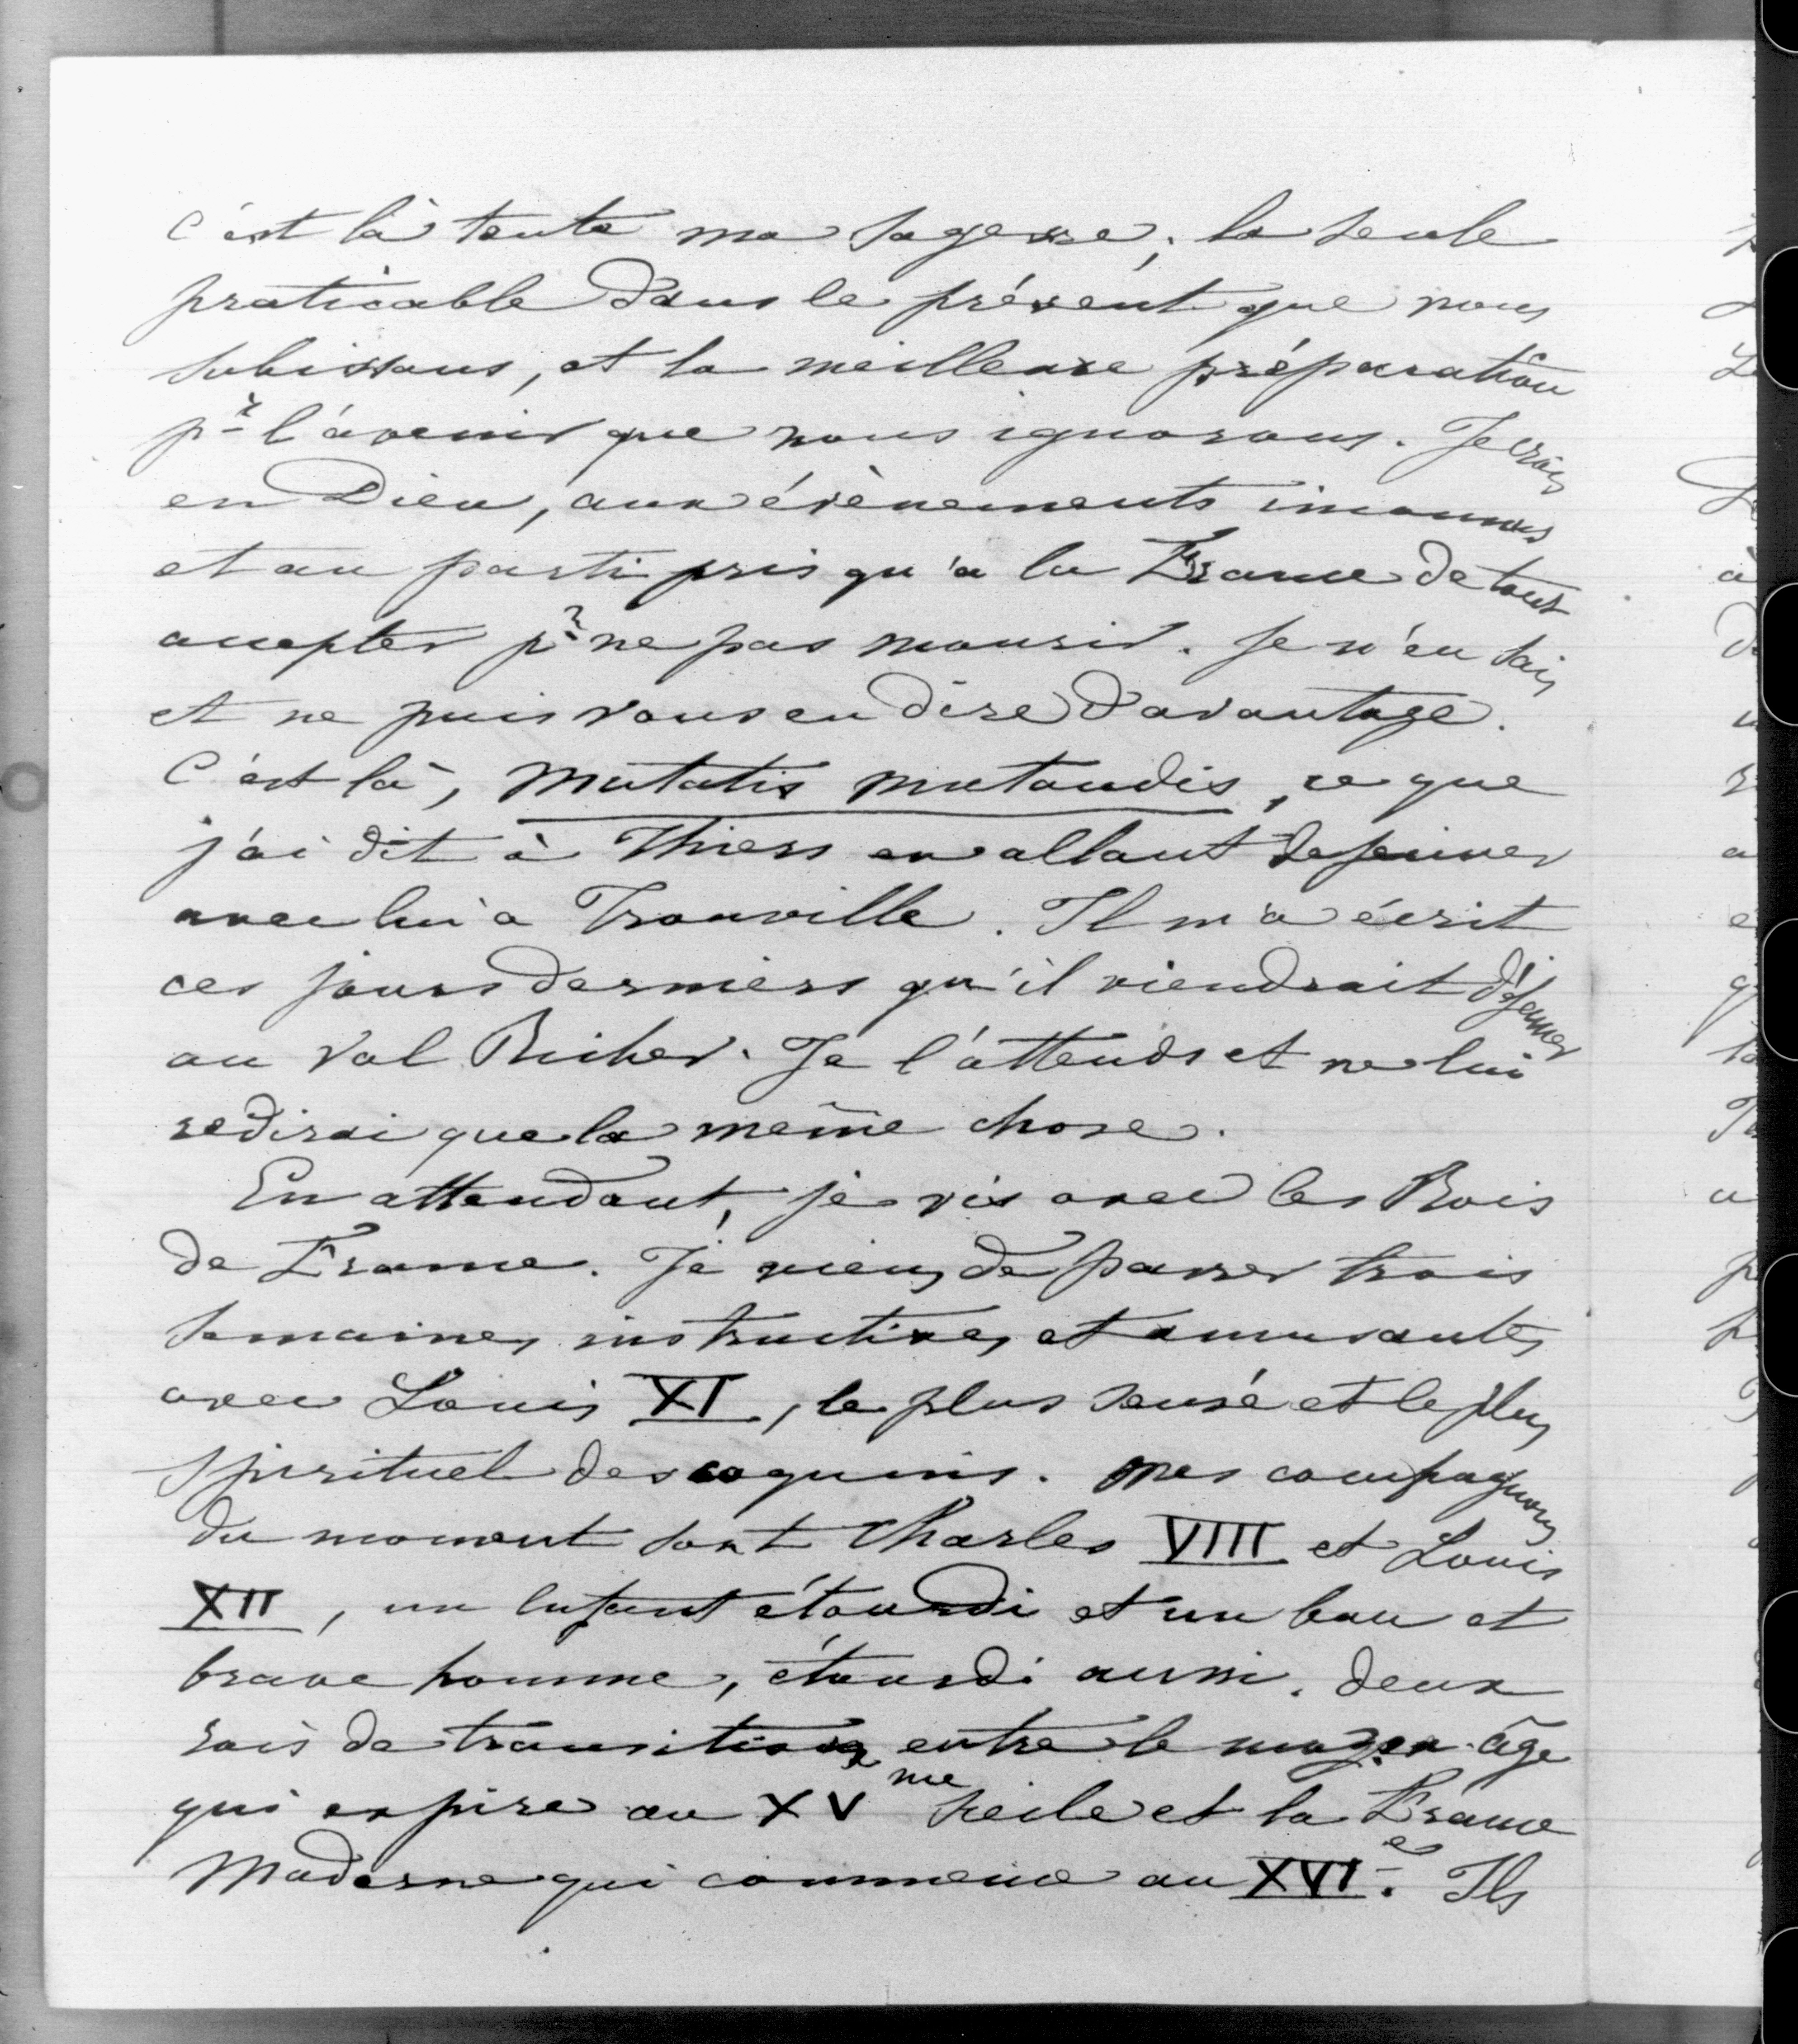 C'est là toute ma sagesse, la seule
praticable dans le présent que nous
subissons, et la meilleure préparation
pr l'avenir que nous ignorons. Je crois
en Dieu, aux évènements inconnus
et au parti pris qu'a la France de tout
accepter pr ne pas mourir. Je n'en sais
et ne puis vous en dire d'avantage.
C'est là, mutatis mutandis, ce que
j'ai dit à Thiers en allant déjeuner
avec lui a Trouville. Il m'a écrit
ces jours derniers qu'il viendrait déjeuner
au Val Richer. Je l'attends et ne lui
redirai que la même chose.
En attendant, je vis avec les Rois
de France. Je viens de passer trois
semaines instructives et amusantes
avec Louis XI, le plus sensé et le plus
spirituel des coquins. Mes compagnons
du moment sont Charles VIII et Louis
XII, un enfant étourdi et un bon et
brave homme, étourdi aussi. Deux
rois de transition entre le moyen-âge
qui expire au XVme siecle et la France
Moderne qui commence au XVIe. Ils